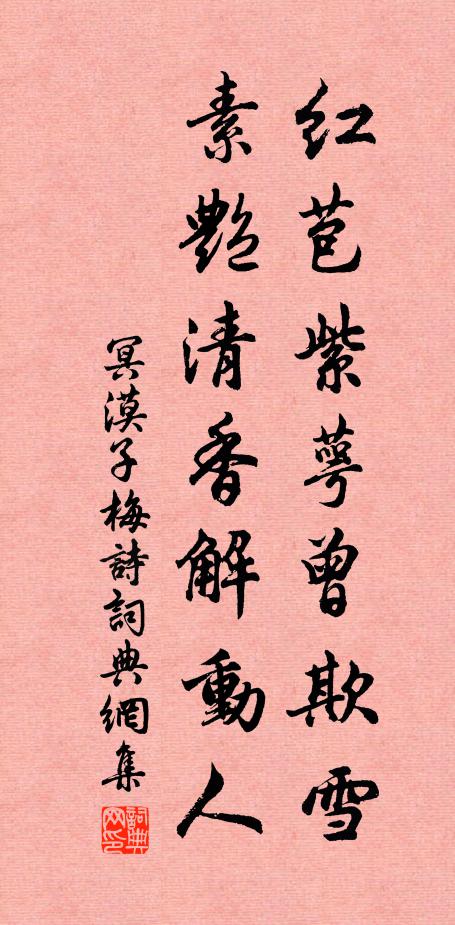 红苞紫萼曾欺雪
素艷清香解動人
冥漠子梅詩詞典網集
詞典网印